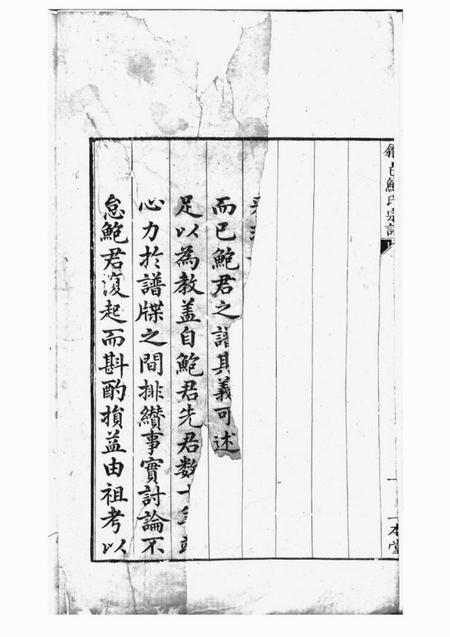 邑鮑氏宗譜
本堂
而已鮑君之譜其義可述
足以為教蓋自鮑君先君數十年
心力於譜牒之間排纘事實討論不
怠鮑君復起而斟酌損益由祖考以